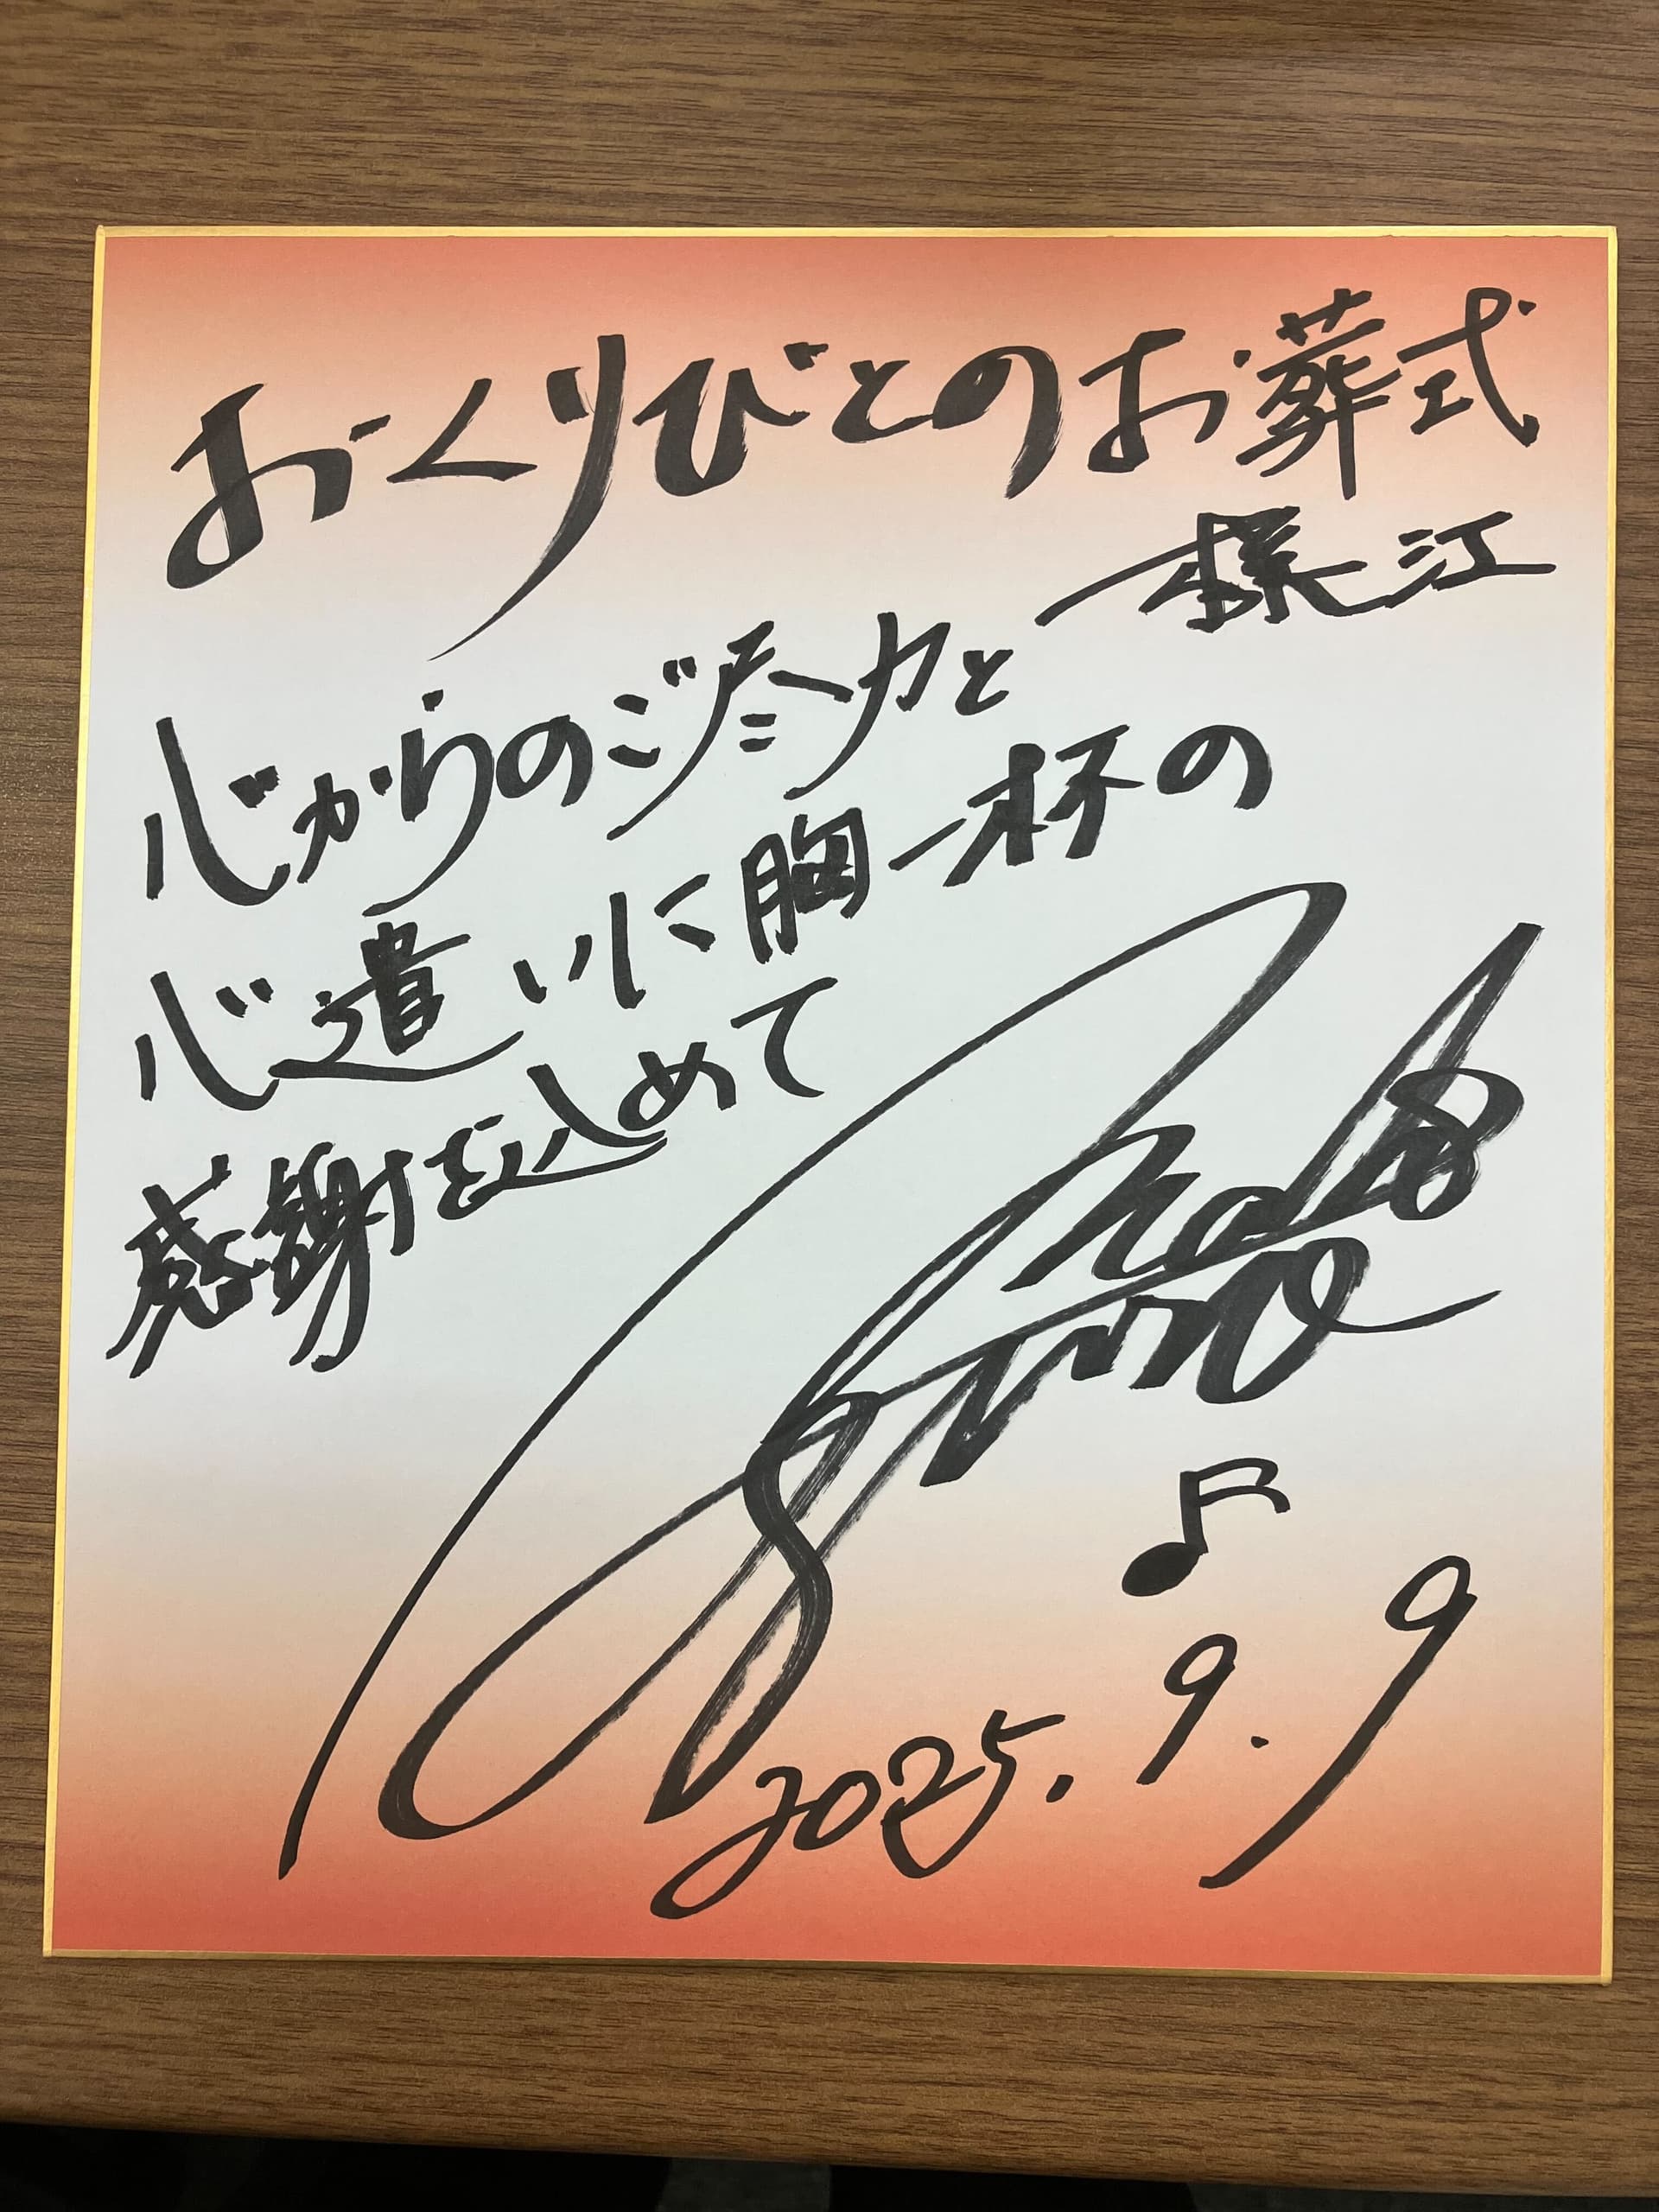 おくりびとのお葬式
様江
心からの
と
心遣いに胸一杯の
感謝を込めて
♪
2025.9.9